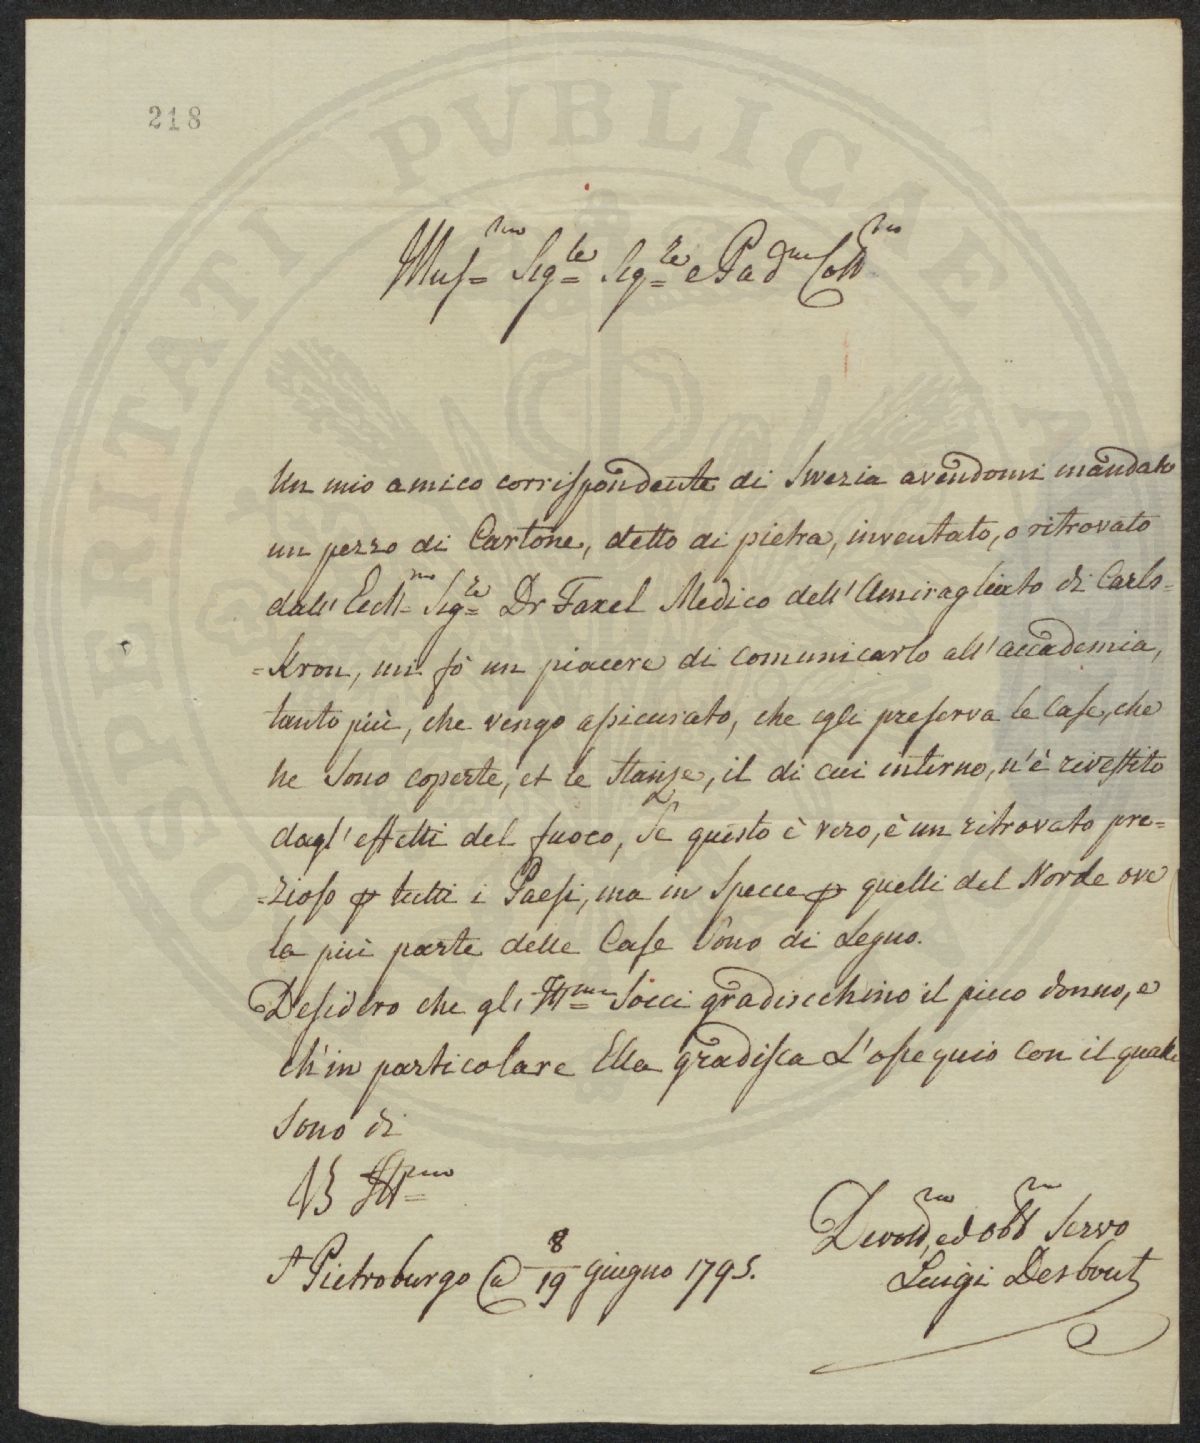 218
Illus.mo Sig.re Sig.re e Pad.ne Coll.mo
Un mio amico corrispondente di Swezia avendomi mandato
un pezzo di Cartone, detto di pietra, inventato, o ritrovato
dall' Eccll.mo Sig.re Dr Faxel Medico dell' Amiragliato di Carls-
=kron, mi fò un piacere di comunicarlo all' accademia,
tanto più, che vengo assicurato, che egli preserva le Case, che
ne Sono coperte, et le Stanze, il di cui interno, n'è rivestito
dagl' effetti del fuoco, Se questo è vero, è un ritrovato pre=
=zioso p tutti i Paesi, ma in Specie p quelli del Norde ove
la più parte delle Case Sono di Legno.
Desidero che gl'Ill.mi Socci gradiscchino il picco donno, e
ch'in particolare Ella gradisca L'ossequio con il quale
Sono di
VS Ill.ma
St Pietroburgo a 8/19 giugno 1795.
Devotis.mo ed obb.mo Servo
Luigi Desbout
SOSPERITATI PUBLICAE A